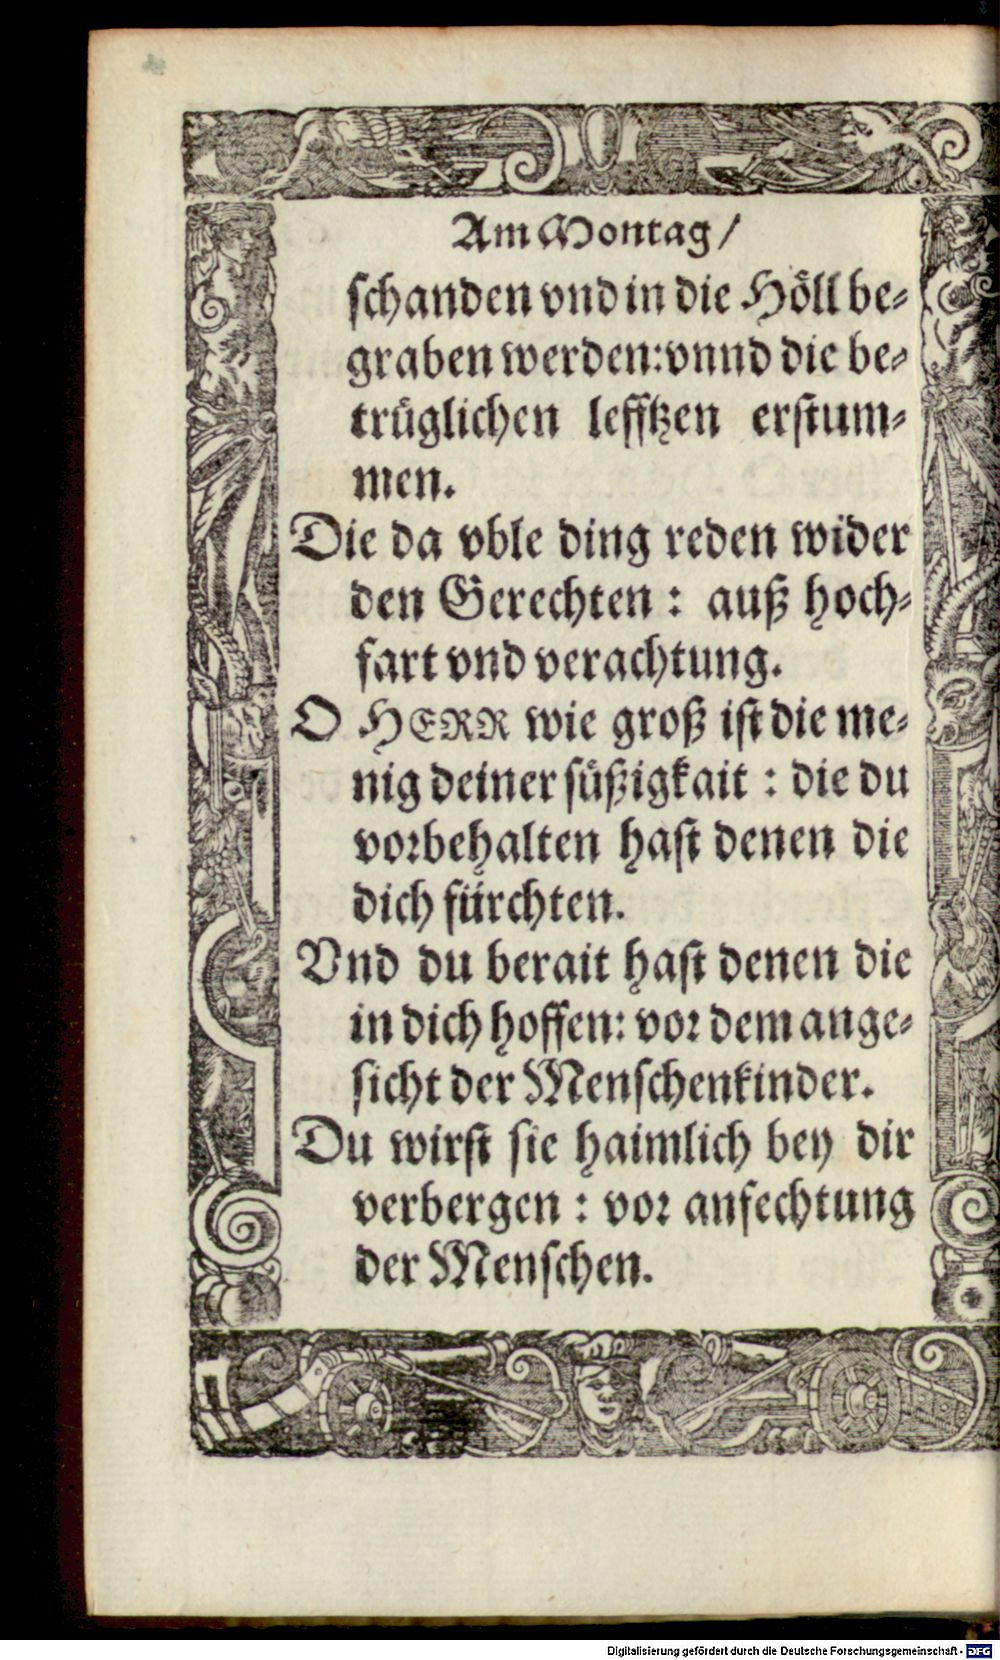 Am Montag/
schanden vnd in die Höll be⸗
graben werden: vnnd die be⸗
trüglichen lefftzen erstum⸗
men.
Die da vble ding reden wider
den Gerechten : auß hoch⸗
fart vnd verachtung.
O HERR wie groß ist die me⸗
nig deiner süßigkait : die du
vorbehalten hast denen die
dich fürchten.
Vnd du berait hast denen die
in dich hoffen: vor dem ange⸗
sicht der Menschenkinder.
Du wirst sie haimlich bey dir
verbergen : vor anfechtung
der Menschen.
Digitalisierung gefördert durch die Deutsche Forschungsgemeinschaft - DFG